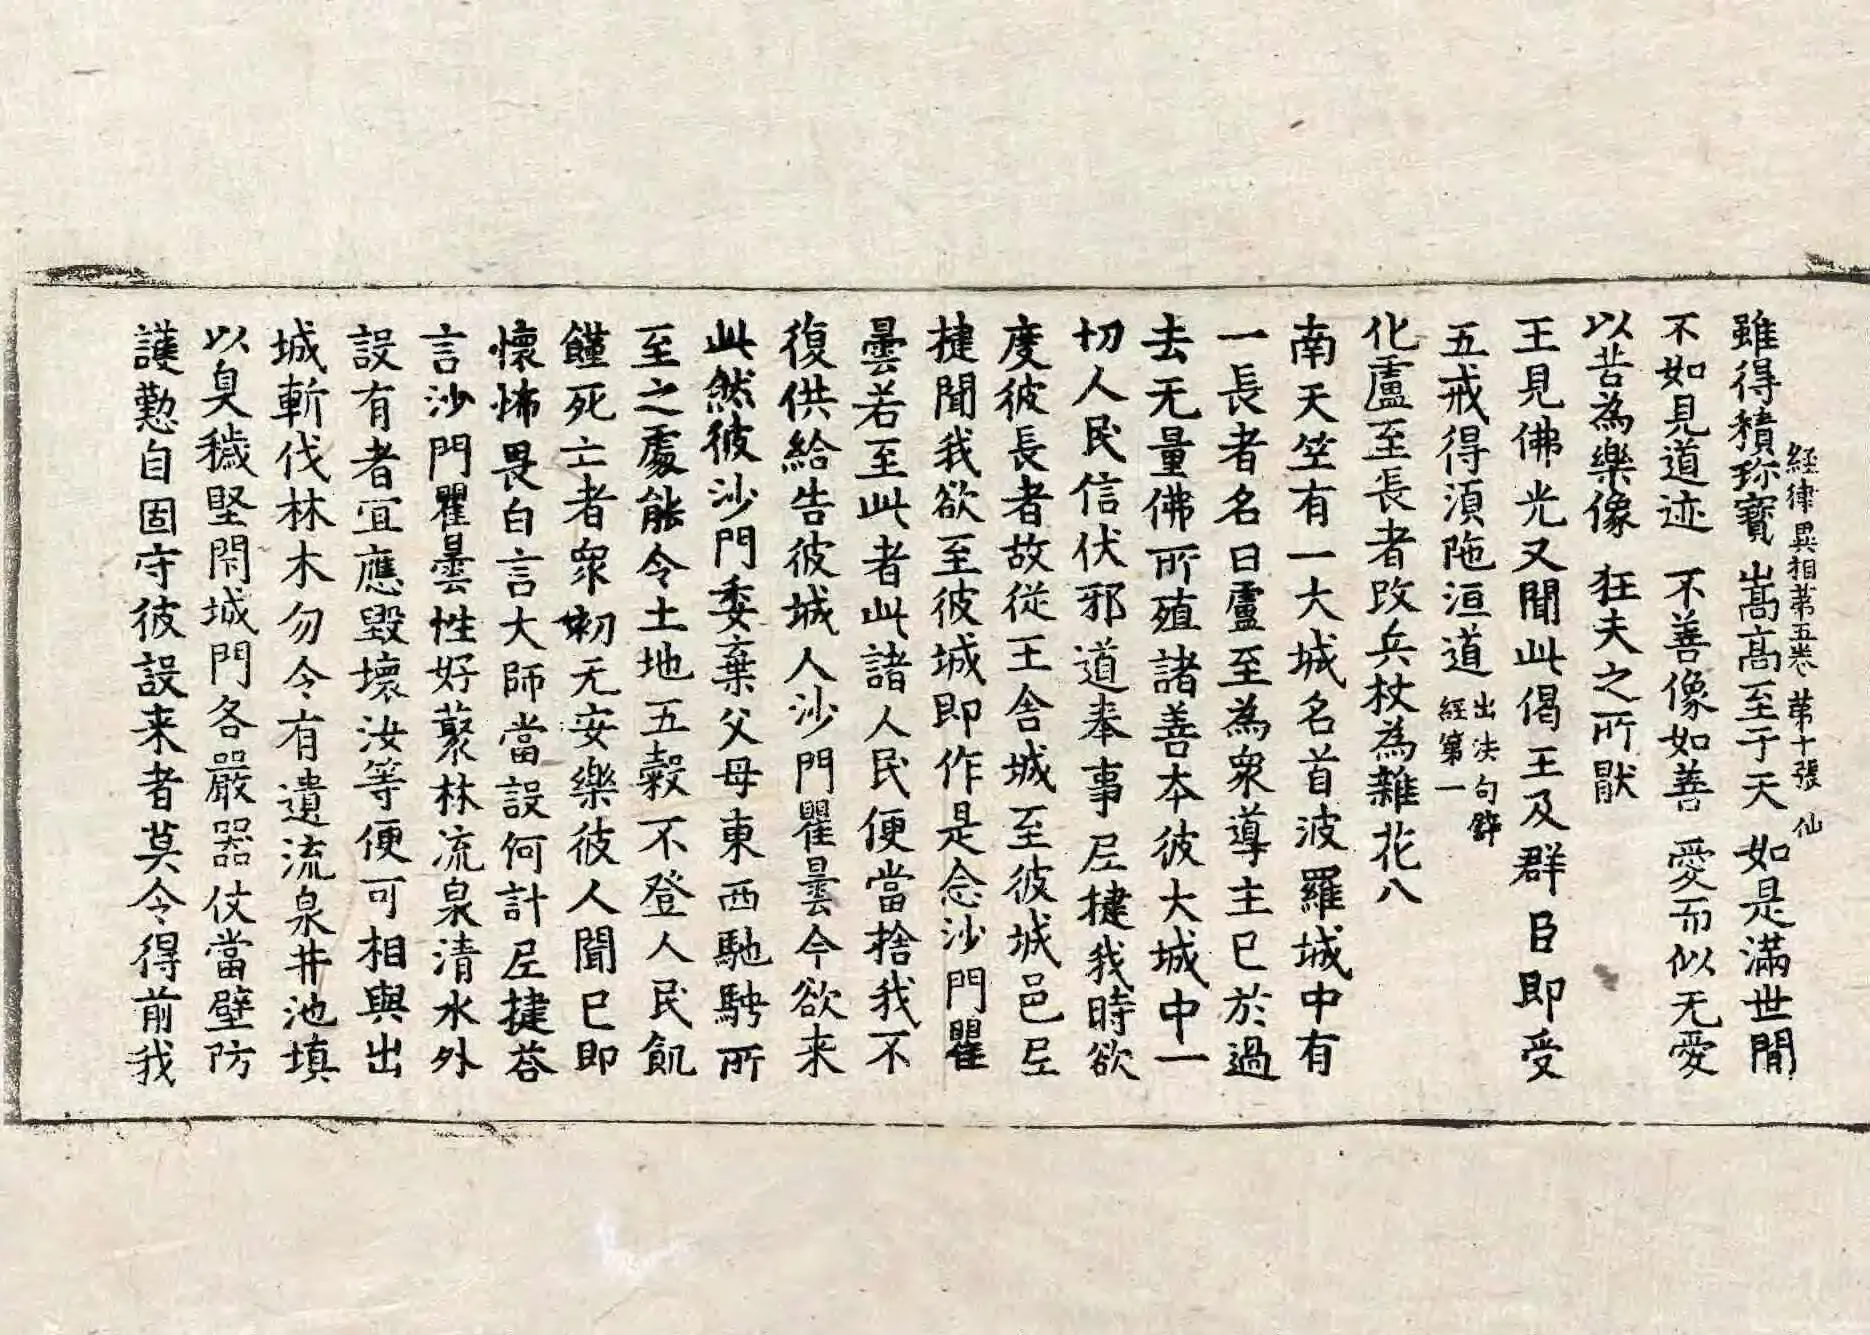 經律異相苐五卷 苐十張 仙
雖得積珎寶 嵩高至于天 如是滿世間
不如見道迹 不善像如善 愛而似无愛
以苦為樂像 狂夫之所猒
王見佛光又聞此偈王及群臣即受
五戒得湏陁洹道 出法句譬
經第一
化盧至長者改兵杖為雜花八
南天竺有一大城名首波羅城中有
一長者名曰盧至為衆導主已於過
去无量佛所殖諸善本彼大城中一
切人民信伏邪道奉事尼揵我時欲
度彼長者故從王舍城至彼城邑尼
揵聞我欲至彼城即作是念沙門瞿
曇若至此者此諸人民便當捨我不
復供給告彼城人沙門瞿曇今欲来
此然彼沙門委棄父母東西馳騁所
至之處能令土地五穀不登人民飢
饉死亡者衆初无安樂彼人聞已即
懷怖畏白言大師當設何計尼揵荅
言沙門瞿曇性好藂林流泉清水外
設有者宜應毀壞汝等便可相與出
城斬伐林木勿令有遺流泉井池填
以臭穢堅閇城門各嚴器仗當壁防
護懃自固守彼設来者莫令得前我